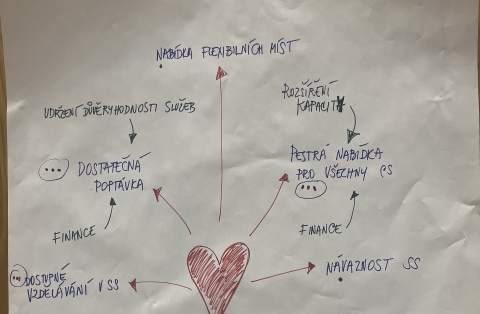 NABÍDKA FLEXIBILNÍCH MÍST
UDRŽENÍ DŮVĚRYHODNOSTI SLUŽEB
ROZŠÍŘENÍ
KAPACIT
DOSTATEČNÁ
POPTÁVKA
PESTRÁ NABÍDKA
PRO VŠECHNY CS
FINANCE
FINANCE
DOSTUPNÉ
VZDĚLÁVÁNÍ V SS
NÁVAZNOST SS